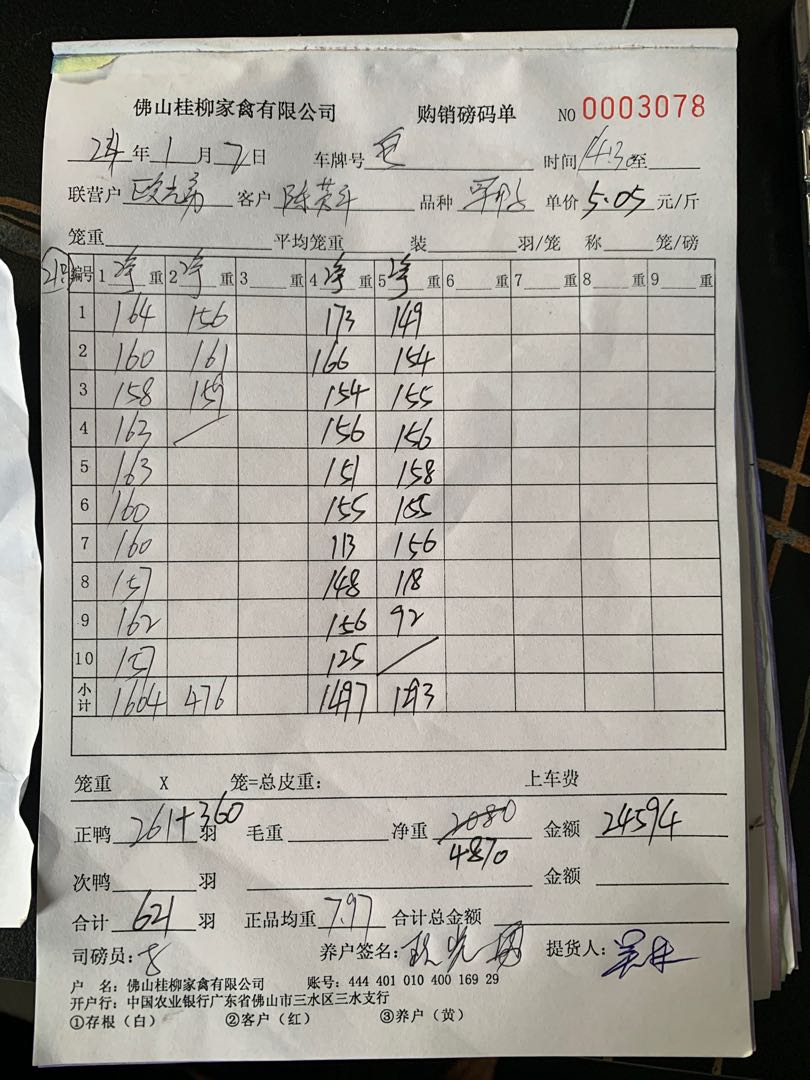 佛山桂柳家禽有限公司 购销磅码单 NO 0003078
24年1月2日 车牌号 时间14:30至
联营户 欧志勇 客户 陈英斗 品种 单价5.05元/斤
笼重 平均笼重 装 羽/笼 称 笼/磅
编号 1净重 2净重 3重 4净重 5净重 6重 7重 8重 9重
1 164 156 173 149
2 160 161 166 154
3 158 159 154 155
4 163 156 156
5 163 151 158
6 160 155 155
7 160 113 156
8 157 148 118
9 162 156 92
10 157 125
小计 1604 476 1497 1293
笼重 X 笼=总皮重: 上车费
正鸭 261+360羽 毛重 净重 2080 金额 24594
4870
次鸭 羽 金额
合计 621羽 正品均重 7.97 合计总金额
司磅员: 养户签名: 提货人:
户 名: 佛山桂柳家禽有限公司 账号: 444 401 010 400 169 29
开户行: 中国农业银行广东省佛山市三水区三水支行
①存根(白) ②客户(红) ③养户(黄)